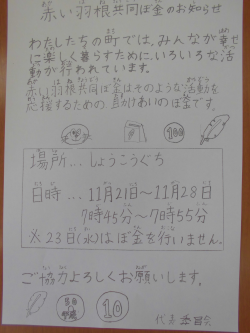 赤い羽根共同ぼ金のお知らせ
わたしたちの町では、みんなが幸せ
に楽しく暮らすために、いろいろな活
動が行われています。
赤い羽根共同ぼ金はそのような活動を
応援するための、助けあいのぼ金です。
100
場所…しょうこうぐち
日時…11月21日~11月28日
7時45分~7時55分
※23日(水)はぼ金を行いません。
ご協力よろしくお願いします。
10
代表委員会